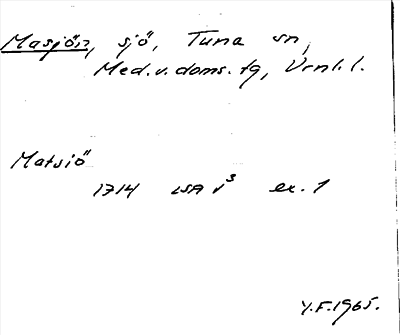 Masjön, sjö, Tuna sn,
Med.v.doms.tg, Vrnl.l.
Matsiö
1714 LSA V³ ex. 1
Y.F.1965.